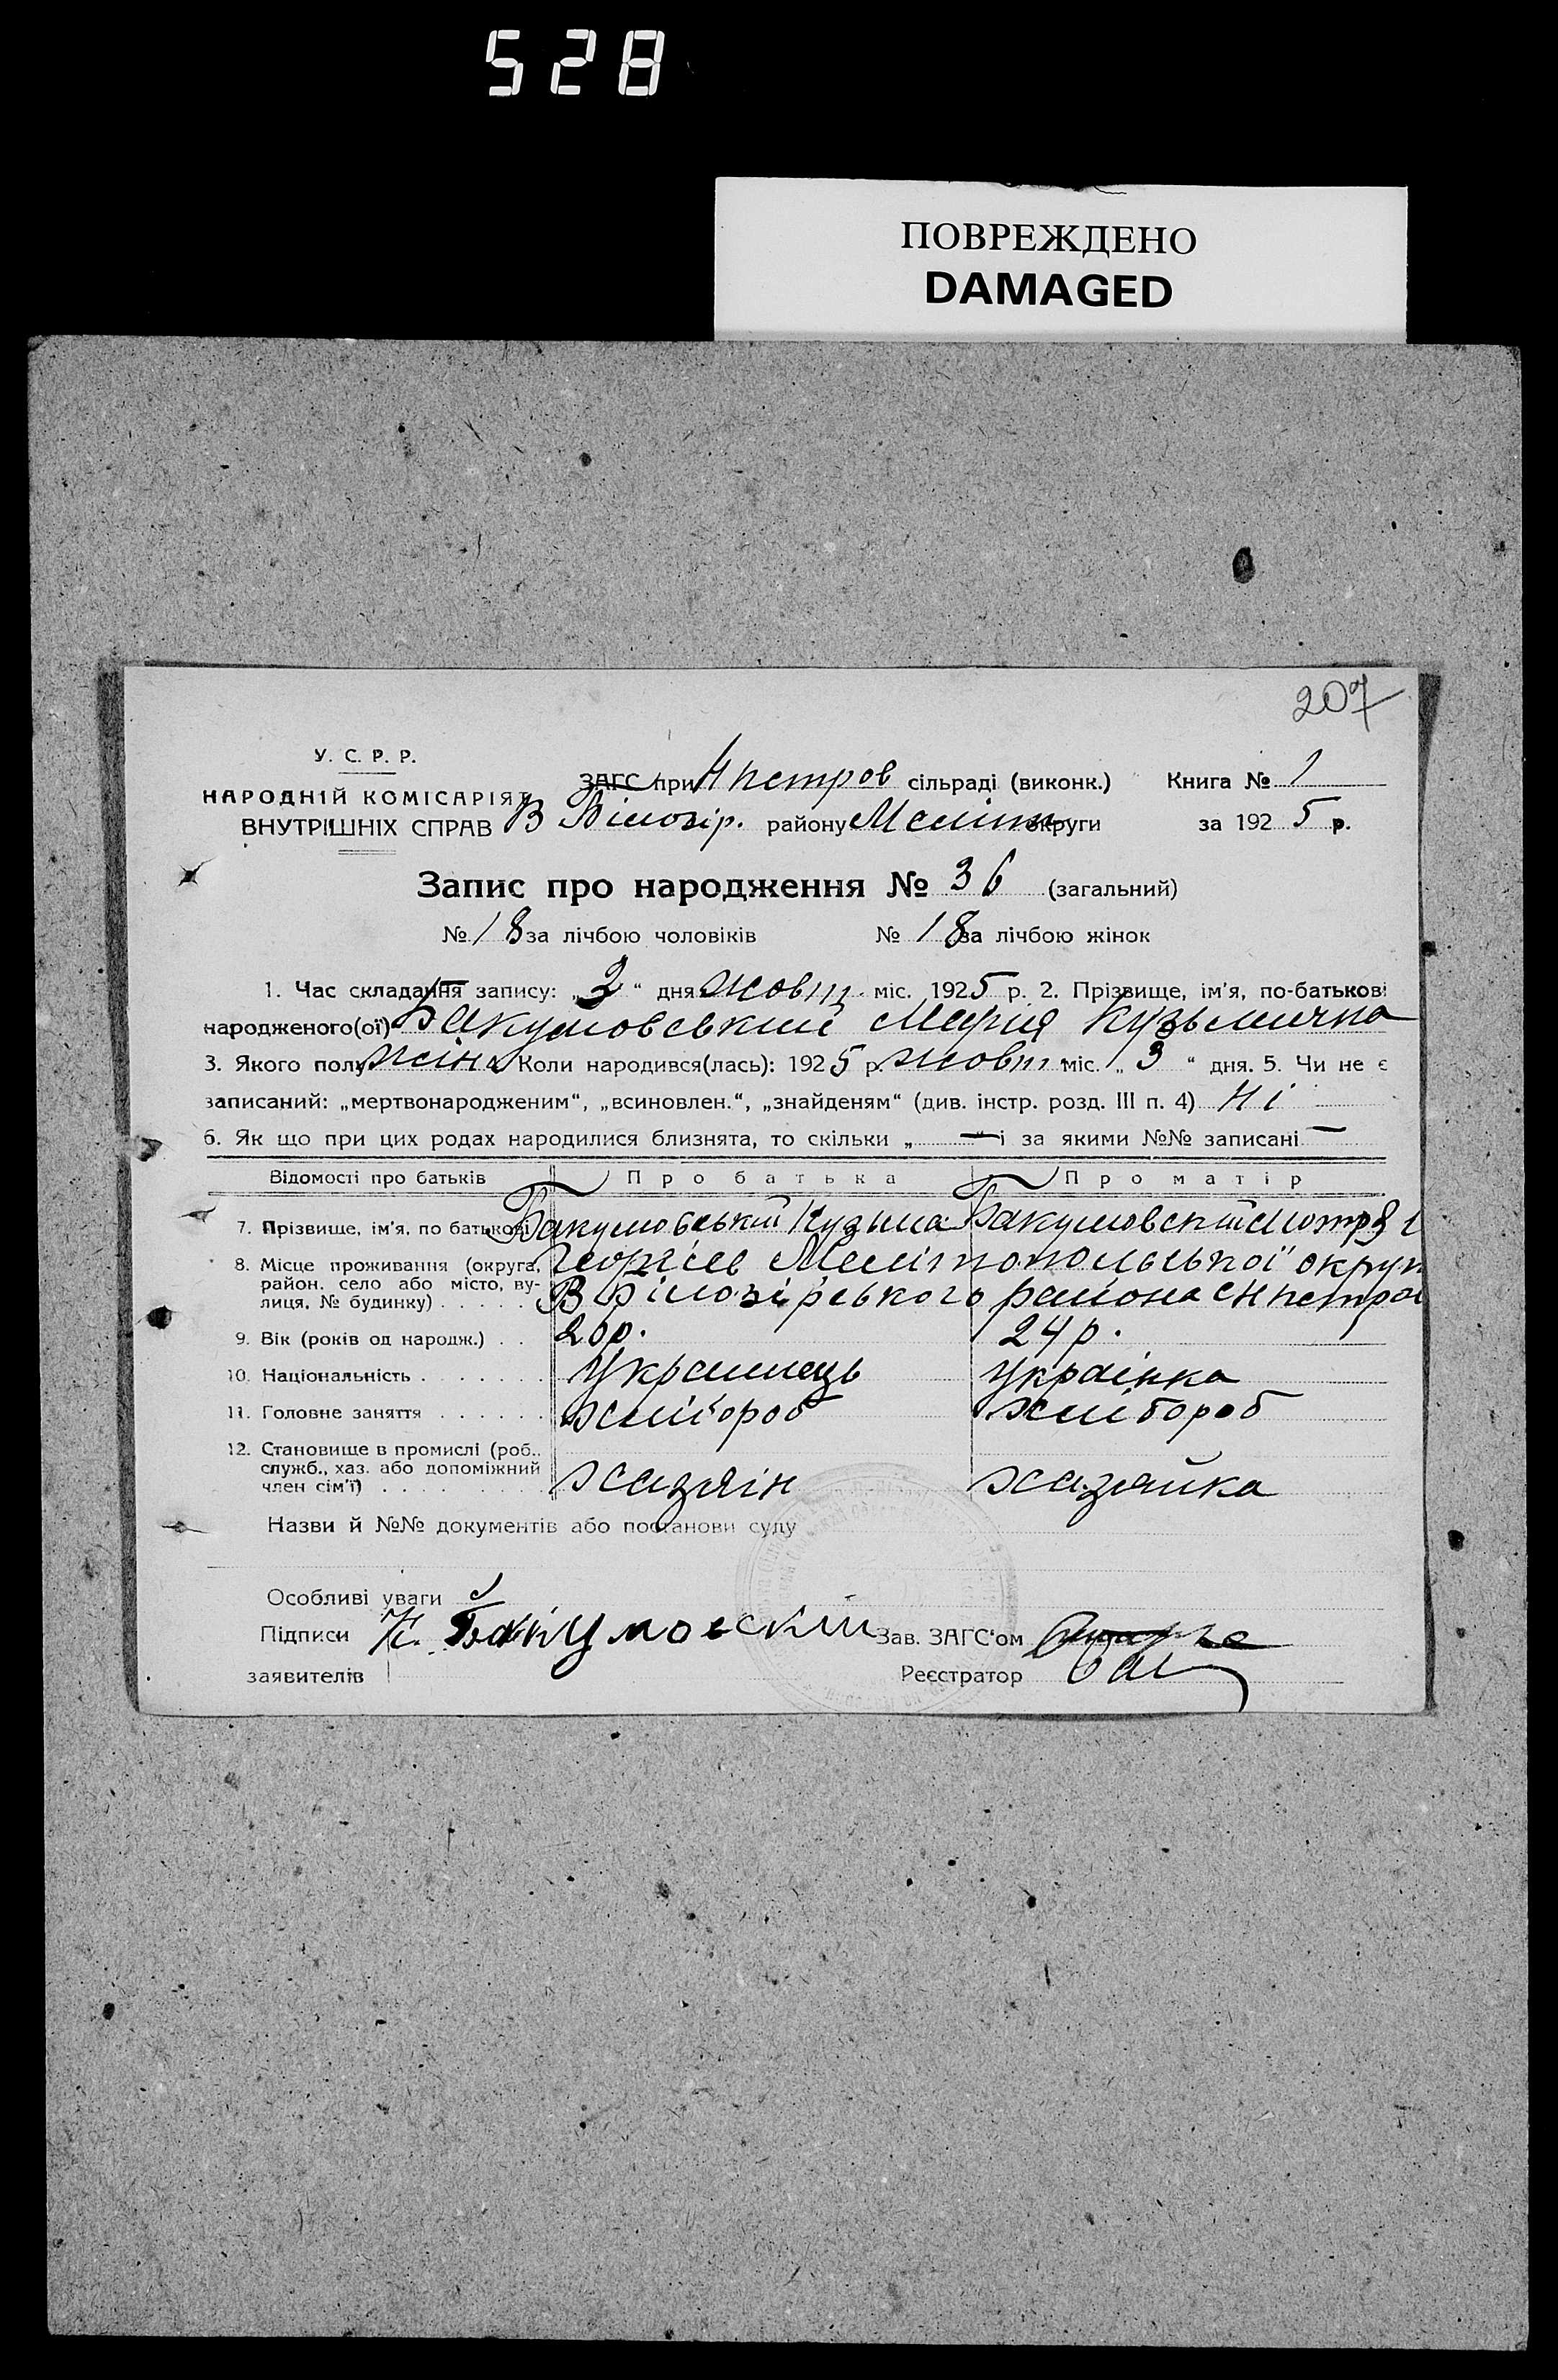 528
ПОВРЕЖДЕНО
DAMAGED
207
У. С. Р. Р.
НАРОДНІЙ КОМІСАРІЯТ
ВНУТРІШНІХ СПРАВ
ЗАГС при Нпетров сільраді (виконк.) Книга № 1
В Білозір. району Меліт округи за 1925 р.
Запис про народження № 36 (загальний)
№ 18 за лічбою чоловіків № 18 за лічбою жінок
1. Час складання запису: „3“ дня жовт міс. 1925 р. 2. Прізвище, ім'я, по-батькові
народженого(ої) Бакумовський Марія Кузьмична
3. Якого полу жін Коли народився(лась): 1925 р. жовт міс. „3“ дня. 5. Чи не є
записаний: „мертвонародженим“, „всиновлен.“, „знайденям“ (див. інстр. розд. III п. 4) Ні
6. Як що при цих родах народилися близнята, то скільки „—“ і за якими №№ записані —
Відомості про батьків Про батька Про матір
7. Прізвище, ім'я, по батькові Бакумовський Кузьма Бакумовский Мотря
8. Місце проживання (округа, район. село або місто, вулиця, № будинку) . . . . . Георгієв Мелітопольської округ
В Білозірського района с Нпетров
9. Вік (років од народж.) . . 20 р. 24 р.
10. Національність . . . . . . . Украинець Українка
11. Головне заняття . . . . . . хлібороб хлібороб
12. Становище в промислі (роб..
служб., хаз. або допоміжний
член сім'ї) . . . . . . . . . хазяїн хазяйка
Назви й №№ документів або постанови суду
Особливі уваги
Підписи К. Бакумовский Зав. ЗАГС'ом
заявителів Реєстратор